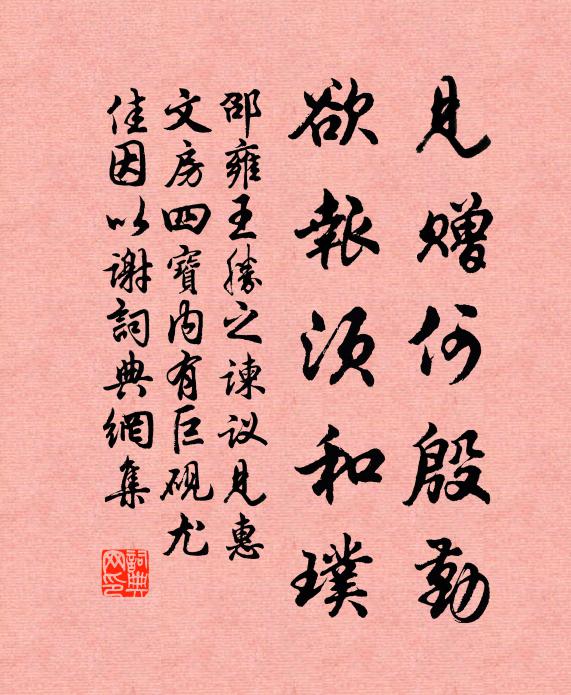 見贈何殷勤
欲報須和璞
邵雍王勝之諫议見惠
文房四寶内有巨硯尤
佳因以谢詞典網集
詞典网印